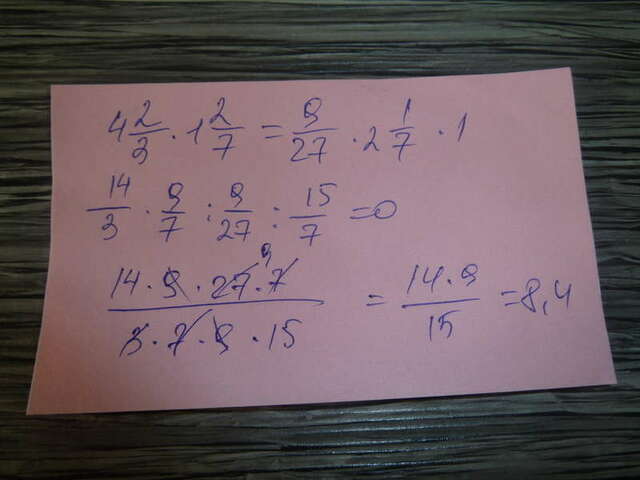 4 2/3 · 1 2/7 = 9/27 · 2 1/7 · 1
14/3 · 9/7 : 9/27 : 15/7 = 0
14 · 9 · 27 · 7 9 / 3 · 7 · 9 · 15 = 14 · 9 / 15 = 8,4